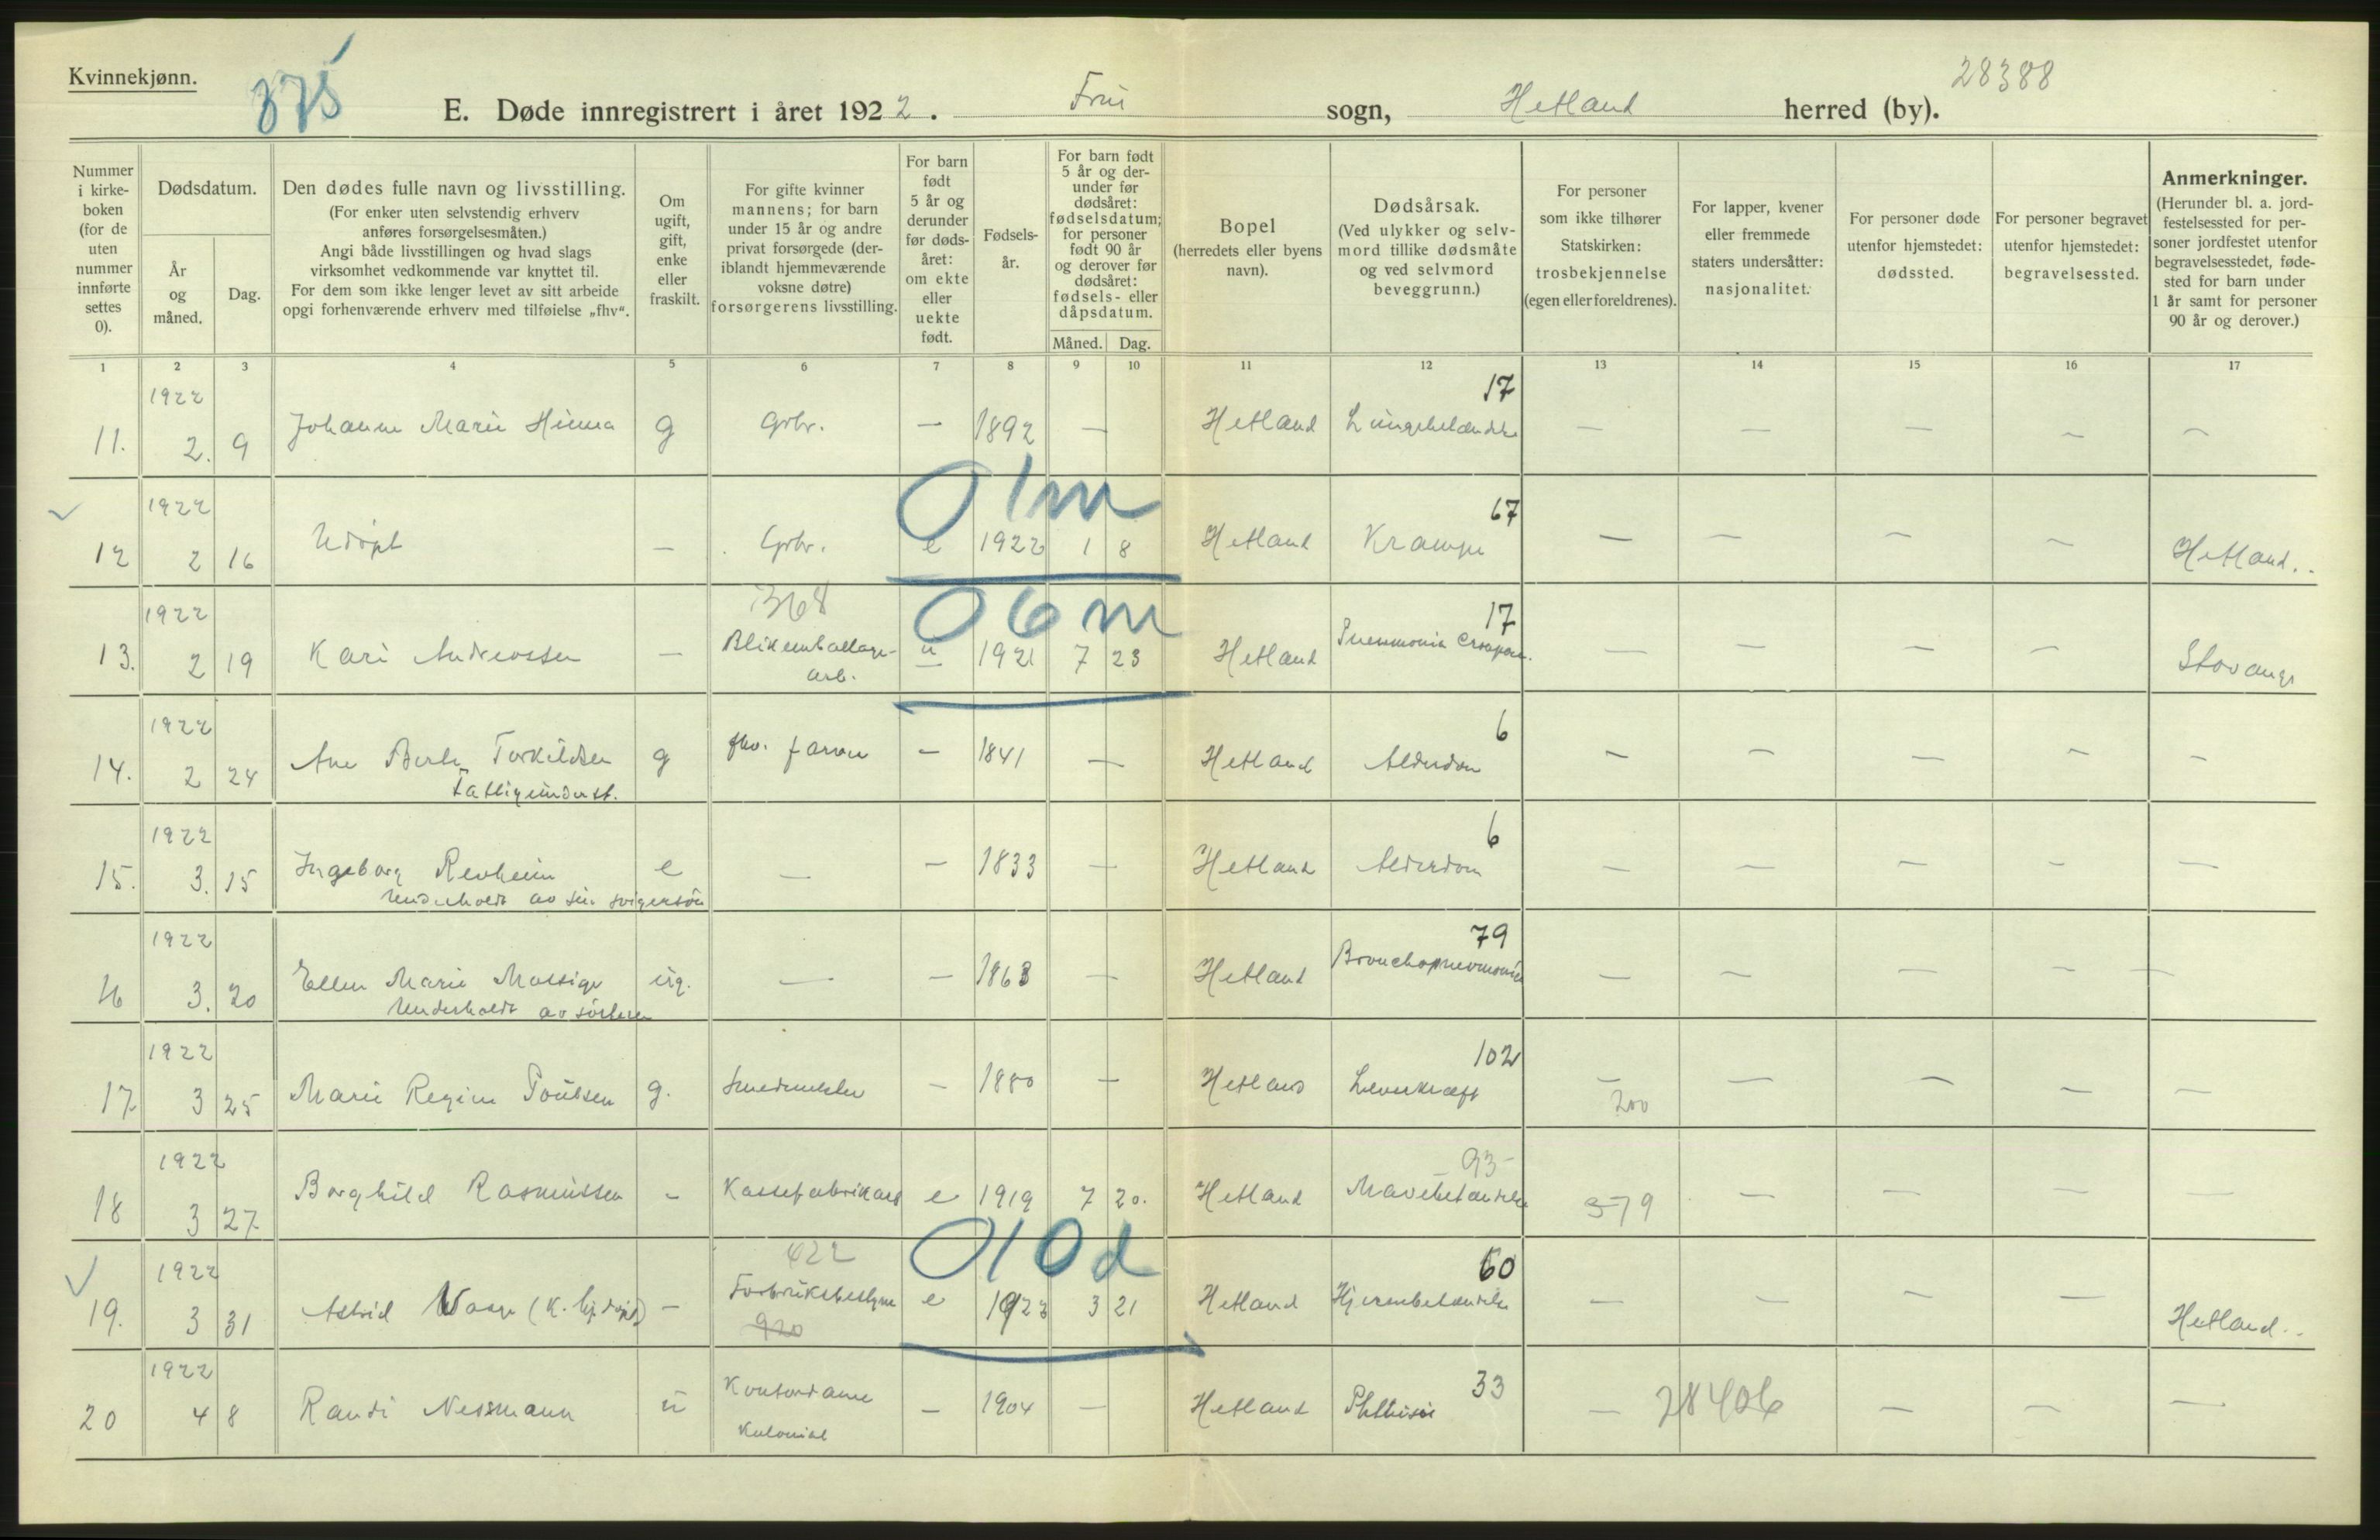 Kvinnekjønn.
375
28388
E. Døde innregistrert i året 1922. Frue sogn, Hetland herred (by).
Nummer i kirke-boken (for de uten nummer innførte settes 0).
Dødsdatum.
År og måned.
Dag.
Den dødes fulle navn og livsstilling.
(For enker uten selvstendig erhverv anføres forsørgelsesmåten.)
Angi både livsstillingen og hvad slags virksomhet vedkommende var knyttet til.
For dem som ikke lenger levet av sitt arbeide opgi forhenværende erhverv med tilføielse „fhv“.
Om ugift, gift, enke eller fraskilt.
For gifte kvinner mannens; for barn under 15 år og andre privat forsørgede (der-iblandt hjemmeværende voksne døtre) forsørgerens livsstilling.
For barn født 5 år og derunder før døds-året: om ekte eller uekte født.
Fødsels-år.
For barn født 5 år og der-under før dødsåret: fødselsdatum; for personer født 90 år og derover før dødsåret: fødsels- eller dåpsdatum.
Måned. Dag.
Bopel (herredets eller byens navn).
Dødsårsak.
(Ved ulykker og selv-mord tillike dødsmåte og ved selvmord beveggrunn.)
For personer som ikke tilhører Statskirken: trosbekjennelse (egen eller foreldrenes).
For lapper, kvener eller fremmede staters undersåtter: nasjonalitet.
For personer døde utenfor hjemstedet: dødssted.
For personer begravet utenfor hjemstedet: begravelsessted.
Anmerkninger.
(Herunder bl. a. jord-festelsessted for per-soner jordfestet utenfor begravelsesstedet, føde-sted for barn under 1 år samt for personer 90 år og derover.)
1 2 3 4 5 6 7 8 9 10 11 12 13 14 15 16 17
1922 17
11. 2. 9 Johanne Marie Hinna g Grbr. — 1892 — Hetland Lungebetændelse — — — — —
0 1 m
1922 67
12 2 16 Udøpt — Grbr. e 1922 1 8 Hetland Krampe — — — — Hetland.
368 0 6 m
1922 17
13. 2 19 Kari Andreassen — Blikemballage-arb. u 1921 7 23 Hetland Pneumonia Crouposa. — — — — Stavanger
1922 6
14. 2 24 Ane Berte Torkildsen g fhv. farver — 1841 — Hetland Alderdom — — — — —
Fattigunderst.
1922 6
15. 3. 15 Ingeborg Revheim e — — 1833 — Hetland Alderdom — — — — —
Underholdt av sin svigersøn
1922 79
16 3. 20 Ellen Marie Mossige ug. — — 1868 — Hetland Bronchopneumonia — — — — —
Underholdt av
1922 102
17. 3 25 Marie Regine Poulsen g. Smedmester — 1880 — Hetland Leverkræft — — — — —
200
1922 93
18 3 27 Borghild Rasmussen - Kassefabrikarb e 1919 7 20. Hetland Mavebetændelse 379 — — — —
422 0 10 d
1922 60
19. 3 31 Astrid Waage (k. hj.døpt) — e 1922 3 21 Hetland Hjernebetændelse — — — — Hetland.
920
1922 33
20 4 8 Randi Nessmann u Kontordame — 1904 — Hetland Phthisis — 28406 — — —
Kolonial